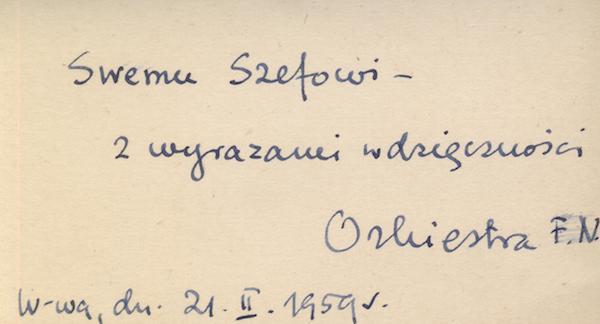 Swemu Szefowi –
z wyrazami wdzięczności
Orkiestra F.N.
W-wa, dn. 21. II. 1959 r.